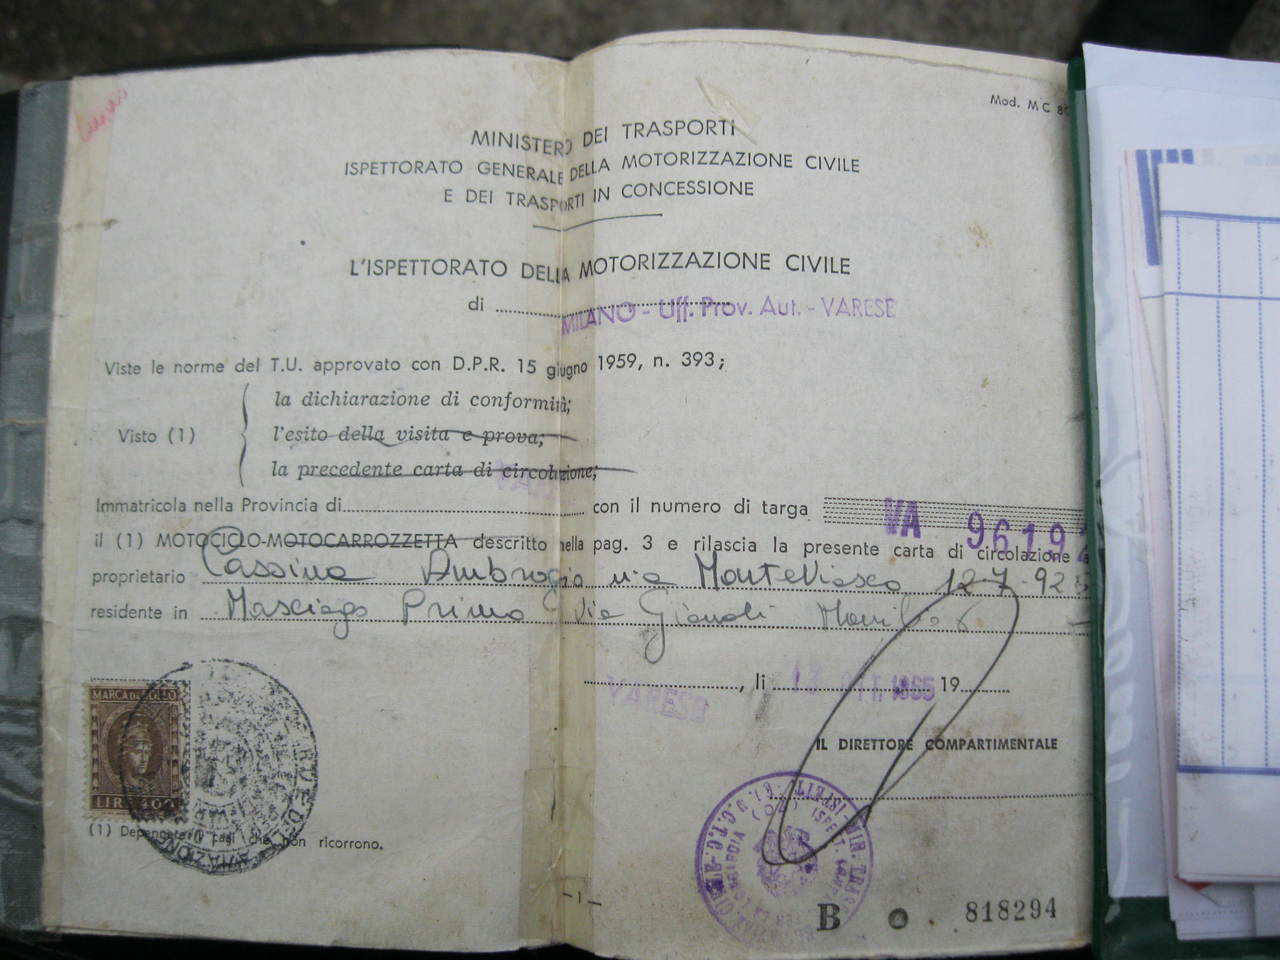 Mod. MC 80
MINISTERO DEI TRASPORTI
ISPETTORATO GENERALE DELLA MOTORIZZAZIONE CIVILE
E DEI TRASPORTI IN CONCESSIONE
L'ISPETTORATO DELLA MOTORIZZAZIONE CIVILE
di MILANO - Uff. Prov. Aut. - VARESE
Viste le norme del T.U. approvato con D.P.R. 15 giugno 1959, n. 393;
la dichiarazione di conformità;
Visto (1) l'esito della visita e prova;
la precedente carta di circolazione;
Immatricola nella Provincia di con il numero di targa VA 9619
il (1) MOTOCICLO-MOTOCARROZZETTA descritto nella pag. 3 e rilascia la presente carta di circolazione
proprietario Cassina Ambrogio 12-7-925
residente in Masciago Primo Via
VARESE, li OTT. 1965 19
MARCA DA BOLLO
LIRE 400
IL DIRETTORE COMPARTIMENTALE
(1) Depennare i casi che non ricorrono.
- 1 -
B 818294